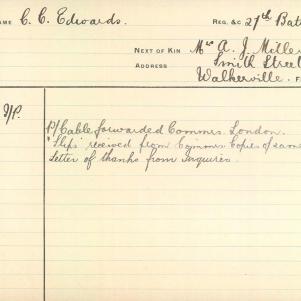 NAME C. C. Edwards. REG. &C 27th Batt
NEXT OF KIN Mrs A. J.
ADDRESS Smith Street
Walkerville.
P/Cable forwarded Commrs. London.
"Slips" received from Commrs Copies of same
Letter of thanks from inquirer.